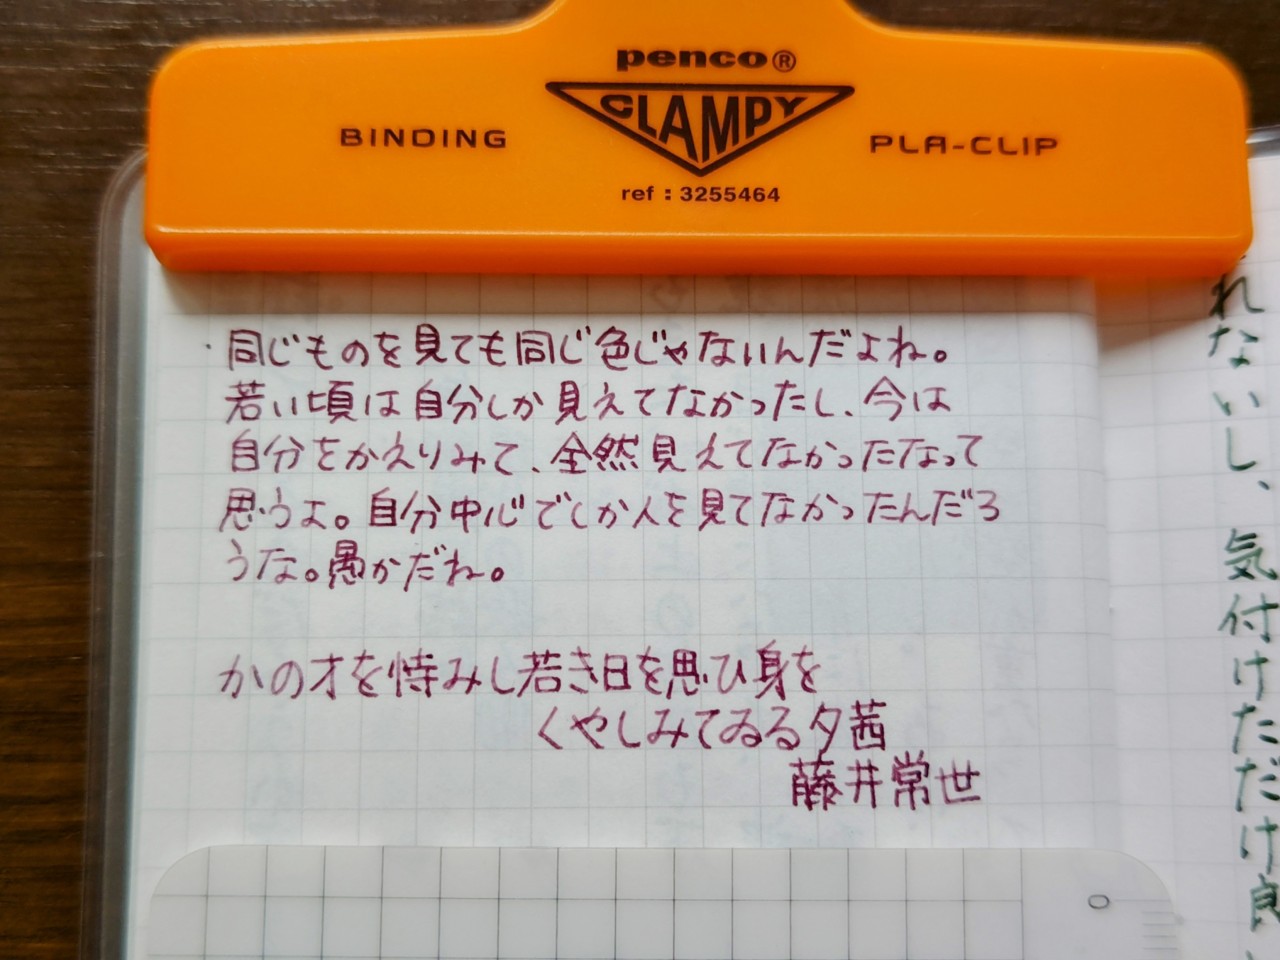 penco®
CLAMPY
BINDING
PLA-CLIP
ref : 3255464
・同じものを見ても同じ色じゃないんだよね。
若い頃は自分しか見えてなかったし、今は
自分をかえりみて、全然見えてなかったなって
思うよ。自分中心でしか人を見てなかったんだろ
うな。愚かだね。
かの才を恃みし若き日を思ひ身を
くやしみてゐる夕茜
藤井常世
れないし、気付けただけ良